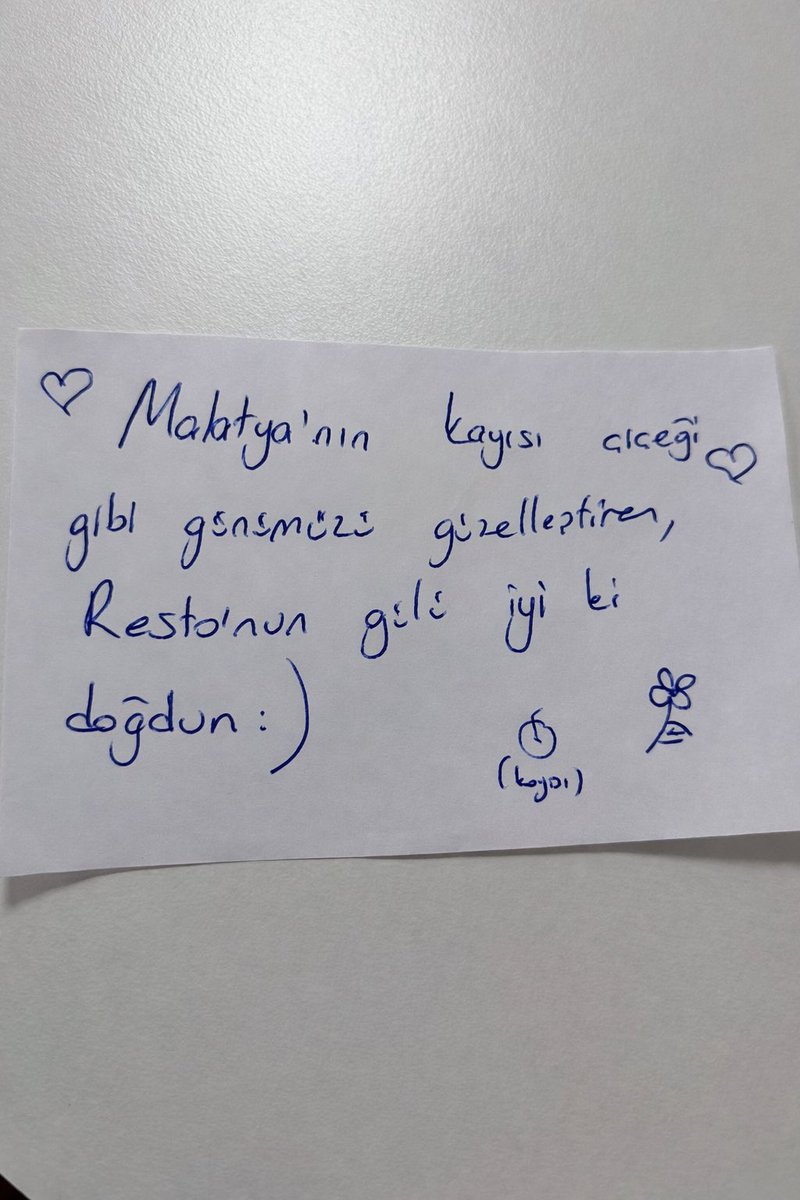 Malatya'nın kayısı çiçeği
gibi günümüzü güzelleştiren,
Resto'nun gülü iyi ki
doğdun :)
(kayısı)